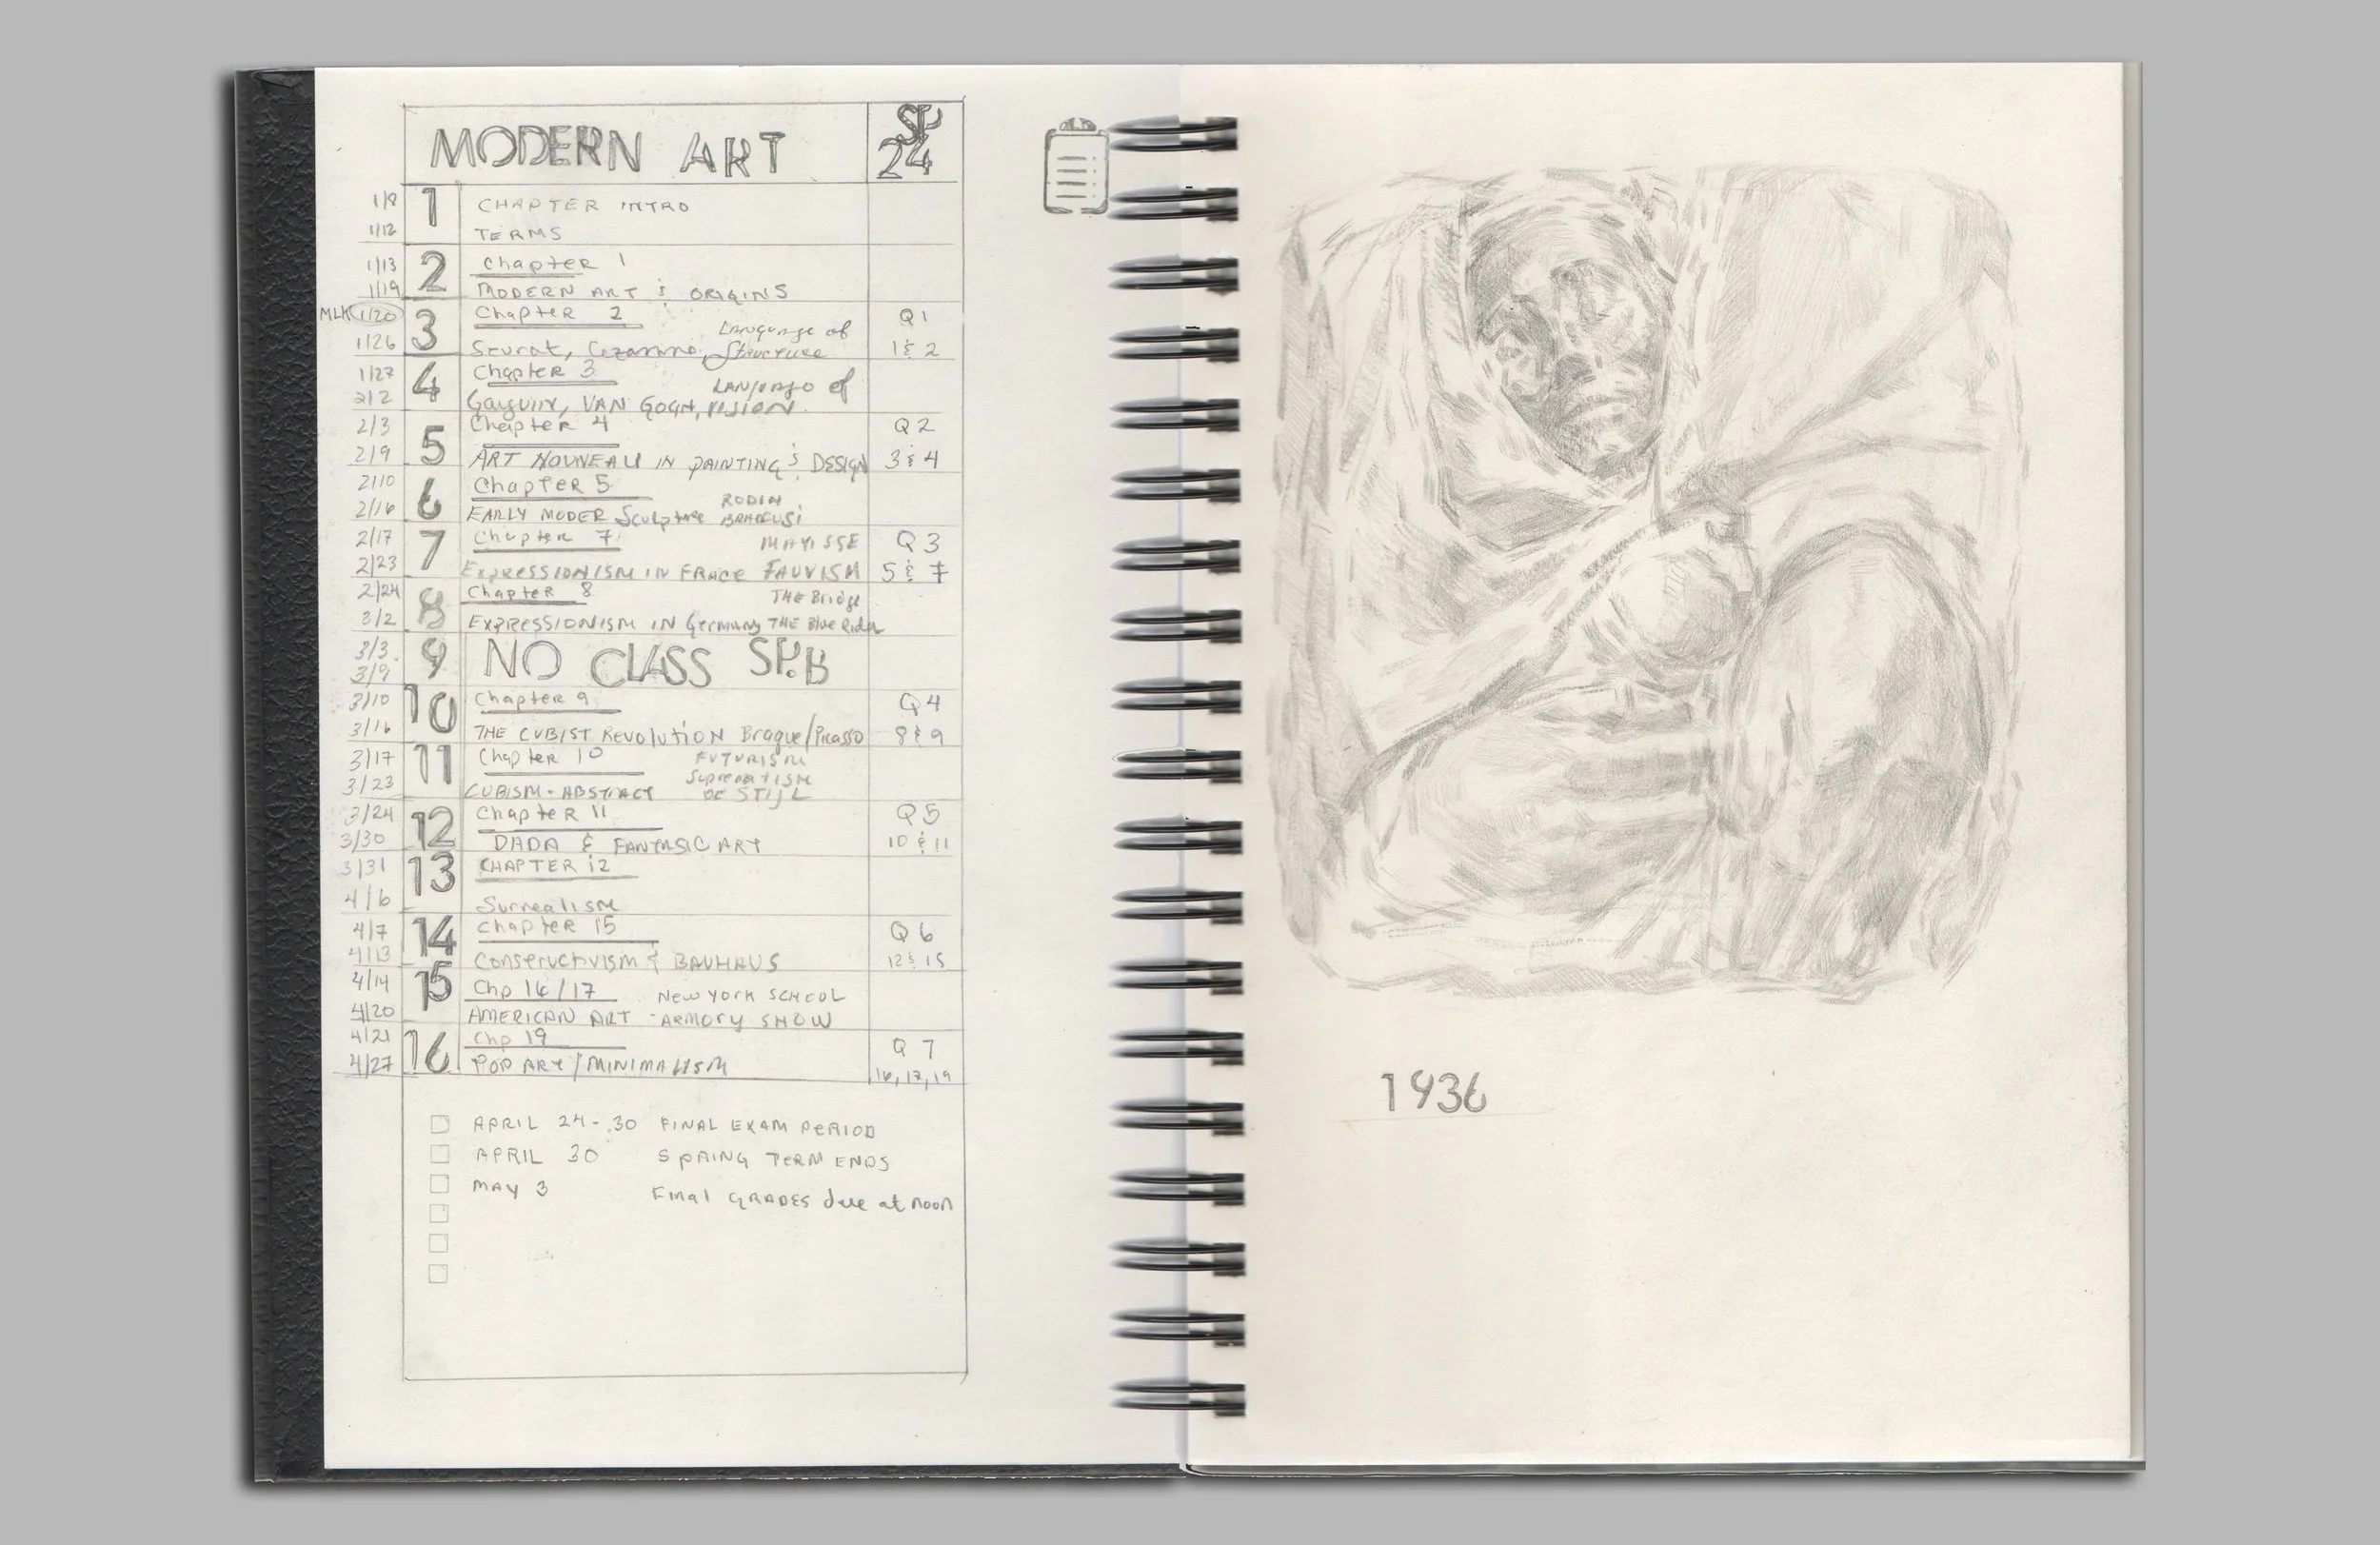 MODERN ART SP 24
1/8 1 CHAPTER INTRO
1/12 TERMS
1/13 2 Chapter 1
1/19 MODERN ART & ORIGINS
MLK 1/20 3 Chapter 2 Language of Q1
1/26 Seurat, Cezanne, Structure 1 & 2
1/27 4 Chapter 3 of
2/2 Gauguin, VAN GOGH, VISION
2/3 5 Chapter 4 Q2
2/9 ART NOUVEAU IN PAINTING & DESIGN 3 & 4
2/10 6 Chapter 5 RODIN
2/16 EARLY MODER Sculpture
2/17 7 Chapter 7 MATISSE Q3
2/23 EXPRESSIONISM IN FRACE FAUVISM 5 & 7
2/24 8 Chapter 8 THE Bridge
3/2 EXPRESSIONISM IN Germany THE Blue Rider
3/3 9 NO CLASS SP.B
3/9
3/10 10 Chapter 9 Q4
3/16 THE CUBIST REVOLUTION Braque/Picasso 8 & 9
3/17 11 Chapter 10 FUTURISM
Suprematism
3/23 CUBISM-ABSTRACT DE STIJL
3/24 12 Chapter 11 Q5
3/30 DADA & FANTASIC ART 10 & 11
3/31 13 CHAPTER 12
4/6 Surrealism
4/7 14 Chapter 15 Q6
4/13 Constructivism & BAUHAUS 12 & 15
4/14 15 Chp 16/17 NEW YORK SCHOOL
4/20 AMERICAN ART - ARMORY SHOW
4/21 16 Chp 19 Q7
4/27 POP ART/MINIMALISM 16, 17, 19
APRIL 24-30 FINAL EXAM PERIOD
APRIL 30 SPRING TERM ENDS
MAY 3 Final GRADES due at noon
1936